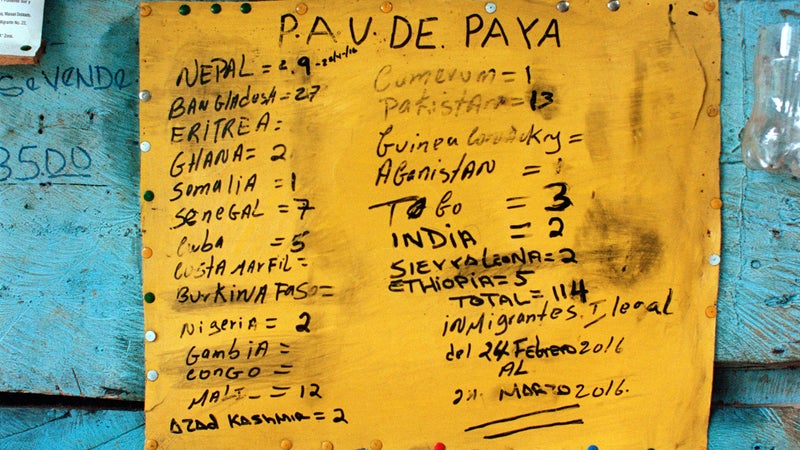 SeVENDe
3500
P.A.V. DE. PAYA
NEPAL = 29
BANGladusH = 27
ERITREA =
GHANA = 2
SomaliA = 1
SeNeGAL = 7
Cuba = 5
COSTA MARFIL =
BURKINA FASO =
NigeriA = 2
Gambia =
CONGO =
MALI = 12
AZAd KASHMIR = 2
Camerum = 1
PaKistan = 13
Guinea Conackry =
AGanistAN = 1
TOGO = 3
INDIA = 2
SIERRALEONA = 2
ETHIOPIA = 5
TOTAL = 114
iNMigrantes. Ilegal
del 24 Febrero 2016
AL
MARZO 2016.